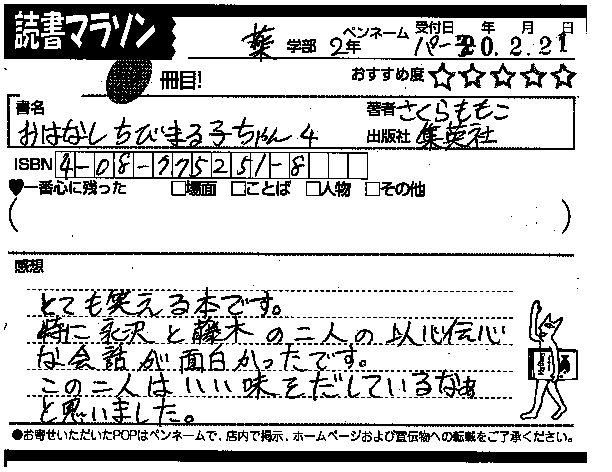 読書マラソン
薬 学部 2年 ペンネーム 受付日 年 月 日
20.2.21
冊目! おすすめ度 ☆☆☆☆☆
書名 著者 さくらももこ
おはなしちびまる子ちゃん 4 出版社 集英社
ISBN 4-08-775251-8
♥一番心に残った □場面 □ことば □人物 □その他
( )
感想
とても笑える本です。
特に永沢と藤木の二人の以心伝心
な会話が面白かったです。
この二人はいい味をだしているなぁ
と思いました。
●お寄せいただいたPOPはペンネームで、店内で掲示、ホームページおよび宣伝物への転載をご了承ください。